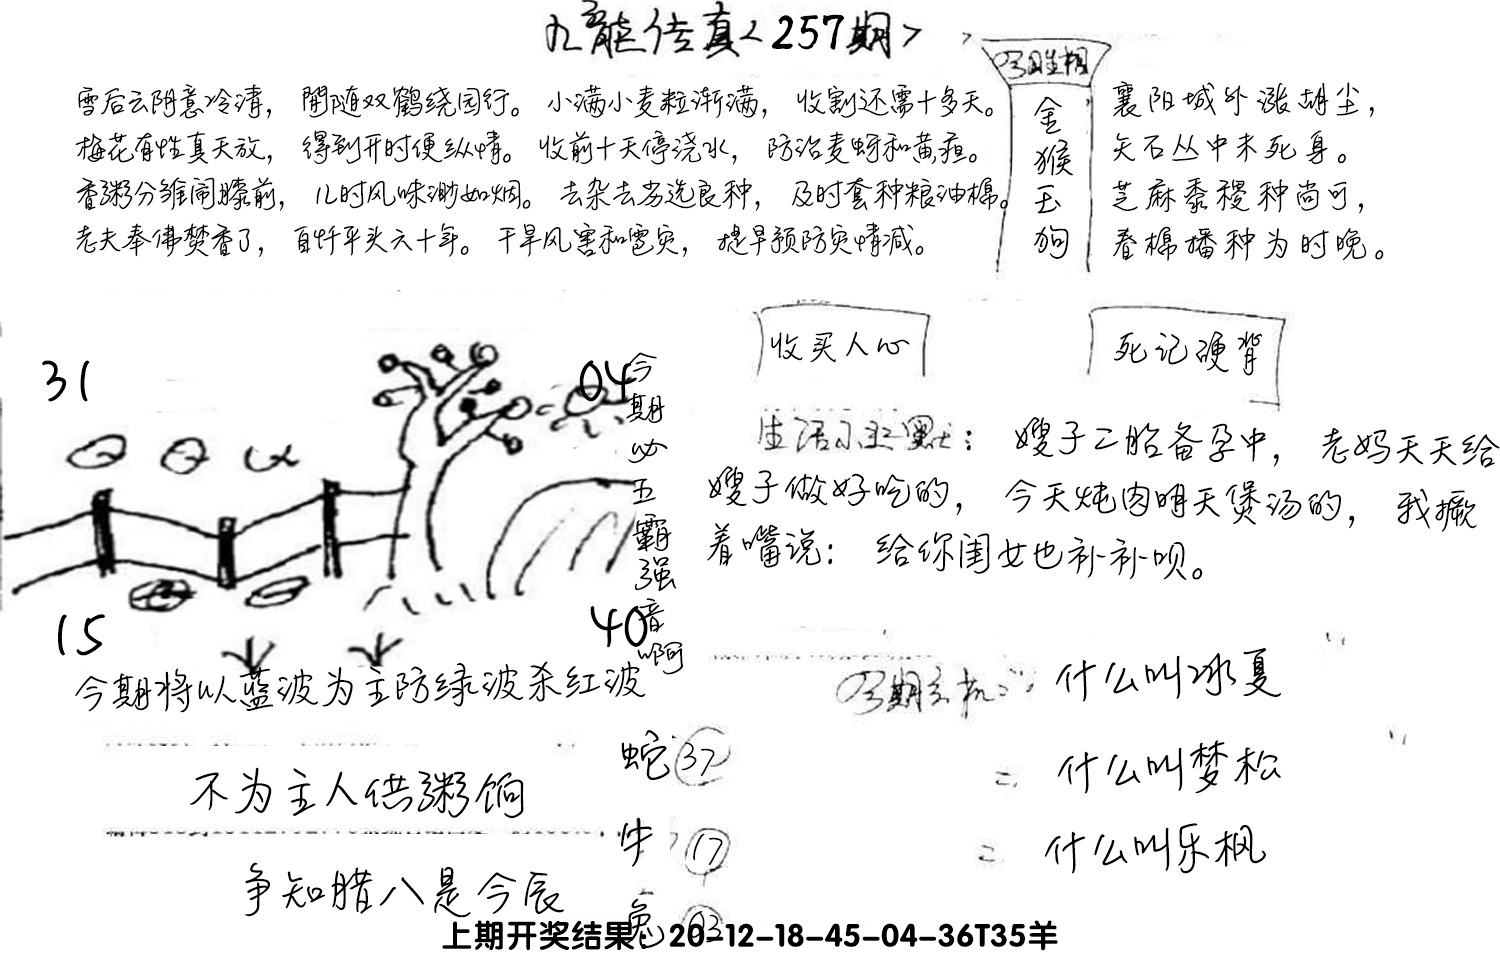 九龍传真<257期>
雪后云阴意冷清，閒随双鹤绕园行。
梅花有性真天放，得到开时便纵情。
香粥分雏闹膝前，儿时风味渺如烟。
老夫奉佛焚香了，自忖平头六十年。
小满小麦粒渐满，收割还需十多天。
收前十天停浇水，防治麦蚜和黄疸。
去杂去劣选良种，及时套种粮油棉。
干旱风害和雹灾，提早预防灾情减。
今期生相
金猴玉狗
襄阳城外涨胡尘，
矢石丛中未死身。
芝麻黍稷种尚可，
春棉播种为时晚。
收买人心
死记硬背
31
04
15
40
今期必五霸强音啊
生活小幽默：嫂子二胎备孕中，老妈天天给
嫂子做好吃的，今天炖肉明天煲汤的，我撅
着嘴说：给你闺女也补补呗。
今期将以蓝波为主防绿波杀红波
不为主人供粥饷
争知腊八是今辰
蛇 37
牛 17
兔 03
今期玄机：什么叫冰夏
= 什么叫梦松
= 什么叫乐枫
上期开奖结果：20-12-18-45-04-36T35羊